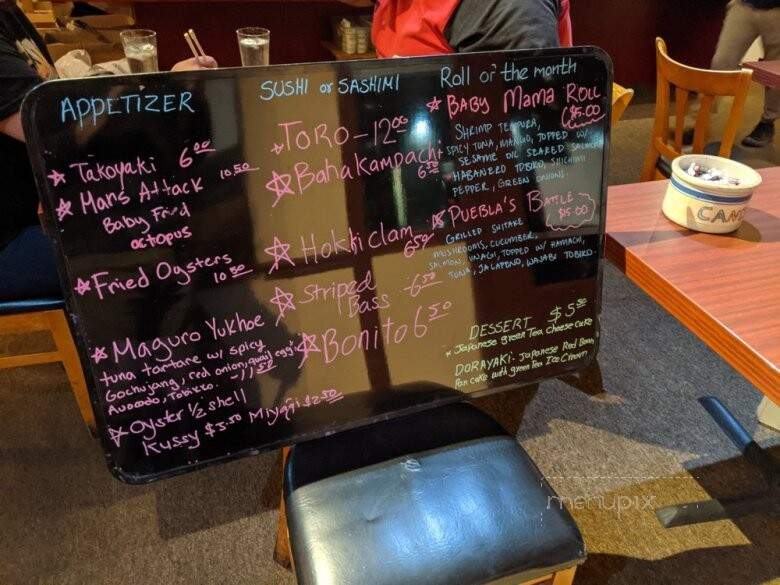 APPETIZER
Takoyaki 6.00
Mars Attack 10.50
Baby Fried
octopus
Fried Oysters
10.50
Maguro Yukhoe
tuna tartare w/ spicy
Gochujang, red onion, quail egg
Avocado, Tobikko. 11.50
Oyster 1/2 shell
Kussy $3.50 Miyagi $2.50
SUSHI or SASHIMI
TORO - 12.00
Bahakampachi
6.50
Hokki clam
6.50
Striped
Bass 6.50
Bonito 6.50
Roll of the month
BABY Mama ROLL
$15.00
SHRIMP TEMPURA,
SPICY TUNA, MANGO, TOPPED W/
SESAME OIL SEARED SALMON
HABANERO TOBIKO, SHICHIMI
PEPPER, GREEN ONIONS.
PUEBLA'S BATTLE
$15.00
GRILLED SHITAKE
MUSHROOMS, CUCUMBER,
SALMON, UNAGI, TOPPED W/ HAMACHI,
TUNA, JALAPENO, WASABI TOBIKO.
DESSERT $5.50
* Japanese green Tea cheese cake
DORAYAKI - Japanese Red Bean
Pancake with green Tea Ice Cream
CAN
menupix